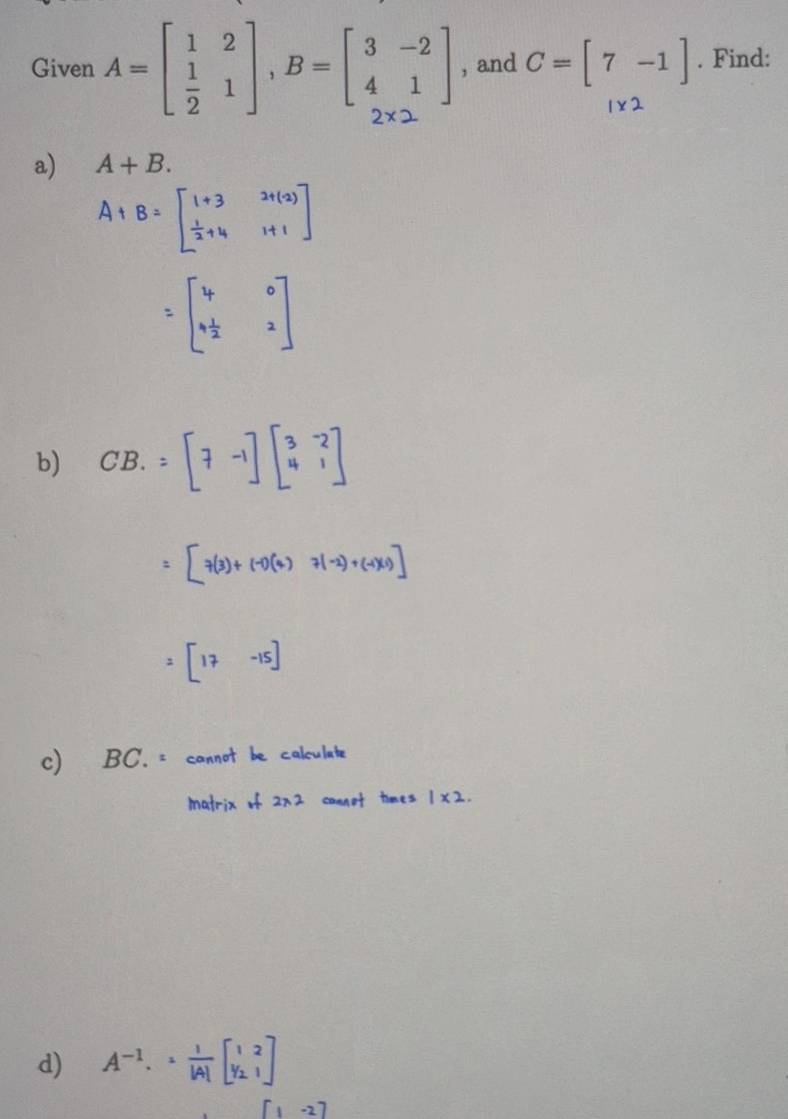 Given A = [ 1 2 ; 1/2 1 ], B = [ 3 −2 ; 4 1 ], and C = [ 7 −1 ]. Find:
2×2 1×2
a) A + B.
A + B = [ 1+3 2+(-2) ; 1/2+4 1+1 ]
= [ 4 0 ; 4 1/2 2 ]
b) CB. = [ 7 -1 ] [ 3 -2 ; 4 1 ]
= [ 7(3)+(-1)(4) 7(-2)+(-1)(1) ]
= [ 17 -15 ]
c) BC. = cannot be calculate
matrix of 2×2 cannot times 1×2.
d) A⁻¹. = 1/|A| [ 1 2 ; 1/2 1 ]
[ 1 -2 ]